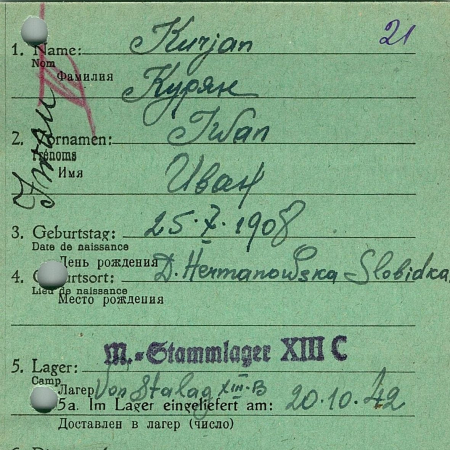 21
1. Name: Kurjan
Nom
Фамилия
Курян
2. Vornamen: Iwan
Prénoms
Имя
Иван
Iwan
3. Geburtstag: 25.X.1908
Date de naissance
День рождения
4. Geburtsort: D. Hermanowska Slobidka,
Lieu de naissance
Место рождения
M.-Stammlager XIII C
5. Lager:
Camp
Лагерь von Stalag XIII-B
5a. Im Lager eingeliefert am: 20.10.42
Доставлен в лагерь (число)